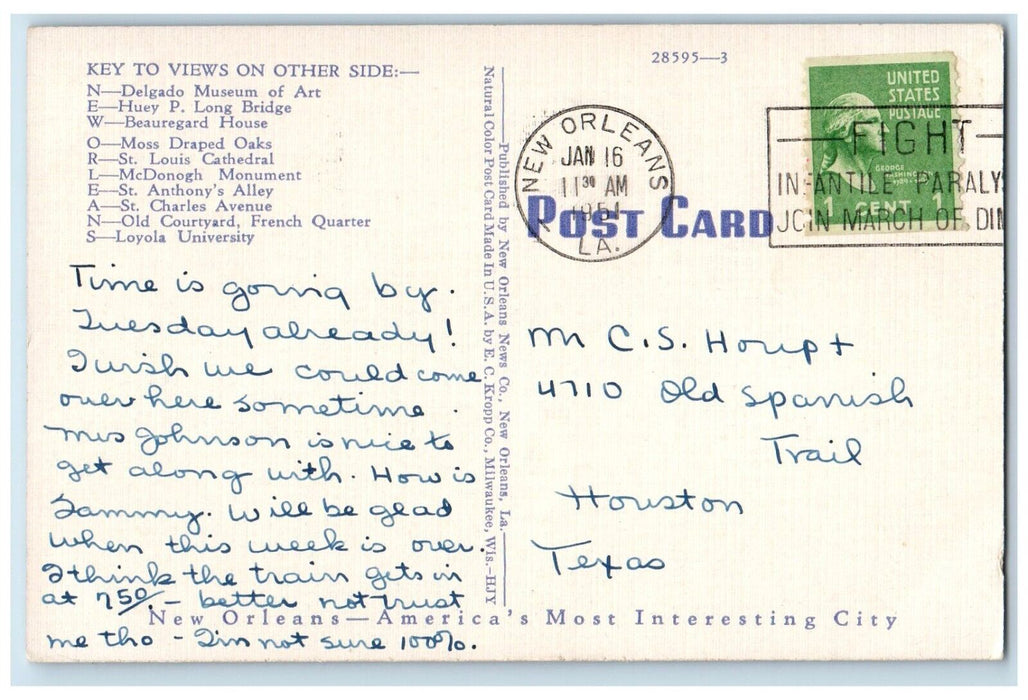 KEY TO VIEWS ON OTHER SIDE:—
N—Delgado Museum of Art
E—Huey P. Long Bridge
W—Beauregard House
O—Moss Draped Oaks
R—St. Louis Cathedral
L—McDonogh Monument
E—St. Anthony's Alley
A—St. Charles Avenue
N—Old Courtyard, French Quarter
S—Loyola University
Time is going by.
Tuesday already!
I wish we could come
over here sometime.
Mrs Johnson is nice to
get along with. How is
Sammy. Will be glad
when this week is over.
I think the train gets in
at 7 50 – better not trust
me tho – I'm not sure 100%.
Published by New Orleans News Co., New Orleans, La.
Natural Color Post Card Made In U.S.A. by E. C. Kropp Co., Milwaukee, Wis.—HJY
28595—3
NEW ORLEANS
JAN 16
11 30 AM
1951
LA.
UNITED
STATES
POSTAGE
GEORGE
WASHINGTON
1 CENT 1
FIGHT
INFANTILE PARALYS
JOIN MARCH OF DIM
POST CARD
Mr C.S. Houpt
4710 Old Spanish
Trail
Houston
Texas
New Orleans—America's Most Interesting City